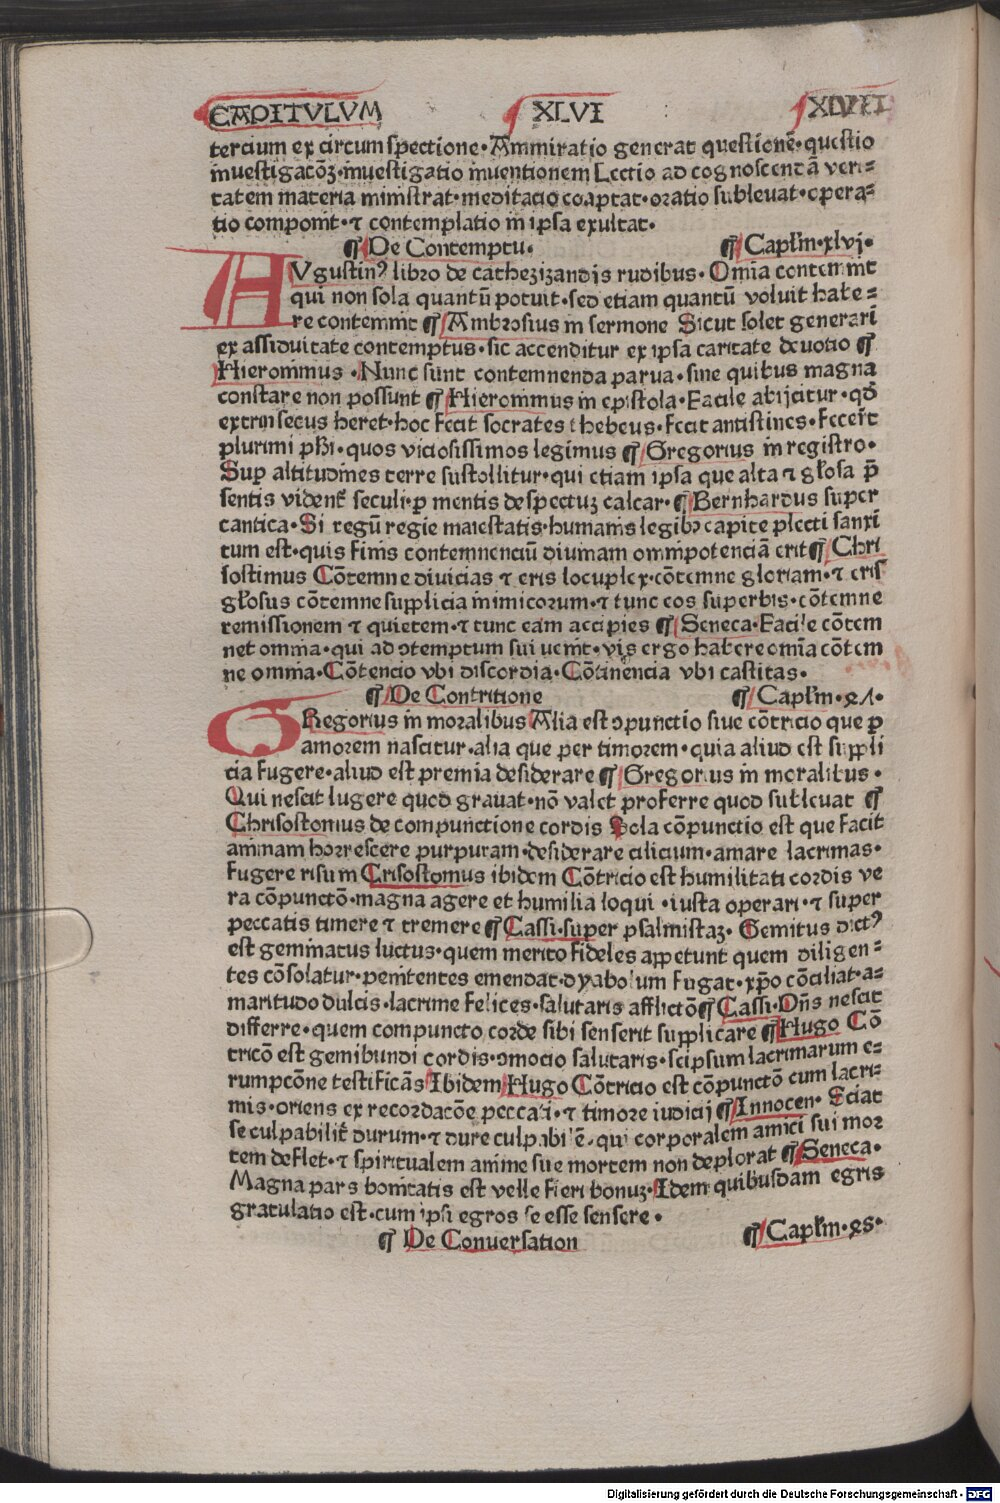 CAPITVLVM XLVI XLVII
tercium ex circumspectione·Ammiratio generat questionē·questio
inuestigacōꝫ·inuestigatio inuentionem Lectio ad cognoscendā veri-
tatem materia ministrat·meditacio coaptat·oratio subleuat·opera-
tio componit·⁊ contemplatio in ipsa exultat·
¶ De Contemptu· ¶ Capl̄m·xlvj·
AVgustinꝰ libro de cathezizandis rudibus·Omnia contemnit
qui non sola quantū potuit·sed etiam quantū voluit habe-
re contemnit ¶ Ambrosius in sermone Sicut solet generari
ex assiduitate contemptus·sic accenditur ex ipsa caritate deuotio ¶
Hieronimus·Nunc sunt contemnenda parua·sine quibus magna
constare non possunt ¶ Hieronimus in epistola·Facile abijcitur·qd̄
extrinsecus heret·hoc fecit socrates thebeus·fecit antistines·fecer̄t
plurimi ph̄i·quos viciosissimos legimus ¶ Gregorius in registro·
Suꝑ altitudines terre sustollitur·qui etiam ipsa que alta ⁊ gl̄osa p̄
sentis vident̄ seculi·ꝑ mentis despectuꝫ calcat·¶ Bernhardus super
cantica·Si regū regie maiestatis·humanis legibꝫ capite plecti sanxi
tum est·quis finis contemnenciū diuinam omnipotenciā erit ¶ Chri
sostimus Cōtemne diuicias ⁊ eris locuplex·cōtemne gloriam·⁊ eris
gl̄osus cōtemne supplicia inimicorum·⁊ tunc eos superbis·cōtemne
remissionem ⁊ quietem·⁊ tunc eam accipies ¶ Seneca·Facile cōtem
net omnia·qui ad ↄtemptum sui uenit·vis ergo habere omīa cōtem
ne omnia·Cōtencio vbi discordia·Cōtinencia vbi castitas·
¶ De Contritione ¶ Capl̄m·
GRegorius in moralibus Alia est ↄpunctio siue cōtricio que ꝑ
amorem nascitur·alia que per timorem·quia aliud est suppli
cia fugere·aliud est premia desiderare ¶ Gregorius in moralibus·
Qui nescit lugere quod grauat·nō valet proferre quod subleuat ¶
Chrisostomus de compunctione cordis Sola cōpunctio est que facit
animam horrescere purpuram·desiderare cilicium·amare lacrimas·
fugere risum Crisostomus ibidem Cōtricio est humilitati cordis ve
ra cōpunctō·magna agere et humilia loqui·iusta operari·⁊ super
peccatis timere ⁊ tremere ¶ Cassi·super psalmistaꝫ·Gemitus dictꝰ
est geminatus luctus·quem merito fideles appetunt quem diligen-
tes cōsolatur·penitentes emendat·dyabolum fugat·xp̄o cōciliat·a-
maritudo dulcis·lacrime felices·salutaris afflictō ¶ Cassi·Dn̄s nescit
differre·quem compuncto corde sibi senserit supplicare ¶ Hugo Cō
tricō est gemibundi cordis·ↄmocio salutaris·seipsum lacrimarum e-
rumpcōne testificās Ibidem Hugo Cōtricio est cōpunctō cum lacri-
mis·oriens ex recordacōe peccati·⁊ timore iudicij ¶ Innocen·Sciat
se culpabilit̄ durum·⁊ dure culpabilē·qui corporalem amici sui mor
tem deflet·⁊ spiritualem anime sue mortem non deplorat ¶ Seneca·
Magna pars bonitatis est velle fieri bonuꝫ·Idem quibusdam egris
gratulatio est·cum ipsi egros se esse sensere·
¶ De Conuersation ¶ Capl̄m·